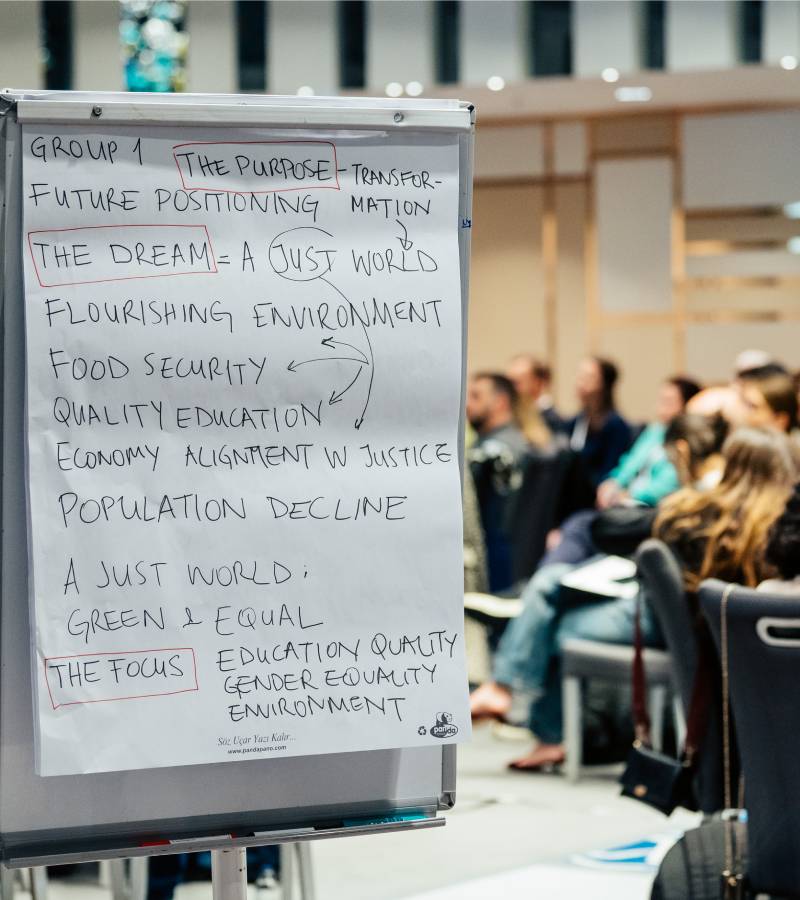 GROUP 1 THE PURPOSE - TRANSFOR-
FUTURE POSITIONING MATION
THE DREAM = A JUST WORLD
FLOURISHING ENVIRONMENT
FOOD SECURITY
QUALITY EDUCATION
ECONOMY ALIGNMENT W JUSTICE
POPULATION DECLINE
A JUST WORLD:
GREEN & EQUAL
THE FOCUS EDUCATION QUALITY
GENDER EQUALITY
ENVIRONMENT
Söz Uçar Yazı Kalır...
www.pandapano.com
panda